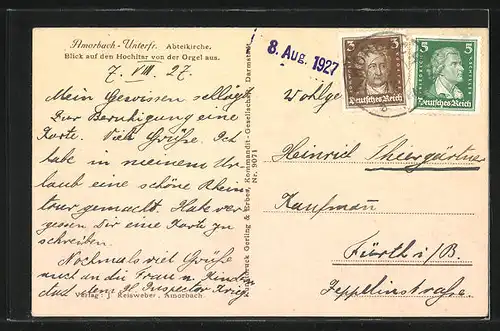 Amorbach - Unterfr. Abteikirche.
Blick auf den Hochaltar von der Orgel aus.
7. VIII. 27.
Mein Gewissen schlägt.
Zur Beruhigung eine
Karte. Viele Grüße. Ich
habe in meinem Ur-
laub eine schöne Rhein
tour gemacht. Habe ver-
gessen Dir eine Karte zu
schreiben.
Nochmals viel Grüße
auch an die Frau u. Kinder
und dem H. Inspector
Verlag: J. Reisweber, Amorbach.
Kupferdruck Gerling & Erbes, Kommandit-Gesellschaft, Darmstadt.
Nr. 9071
8. Aug. 1927
3 3
Deutsches Reich
5 5
Deutsches Reich
Wohlge
Heinrich Thiergärtner
Kaufmann
Fürth i/B.
Zeppelinstraße.